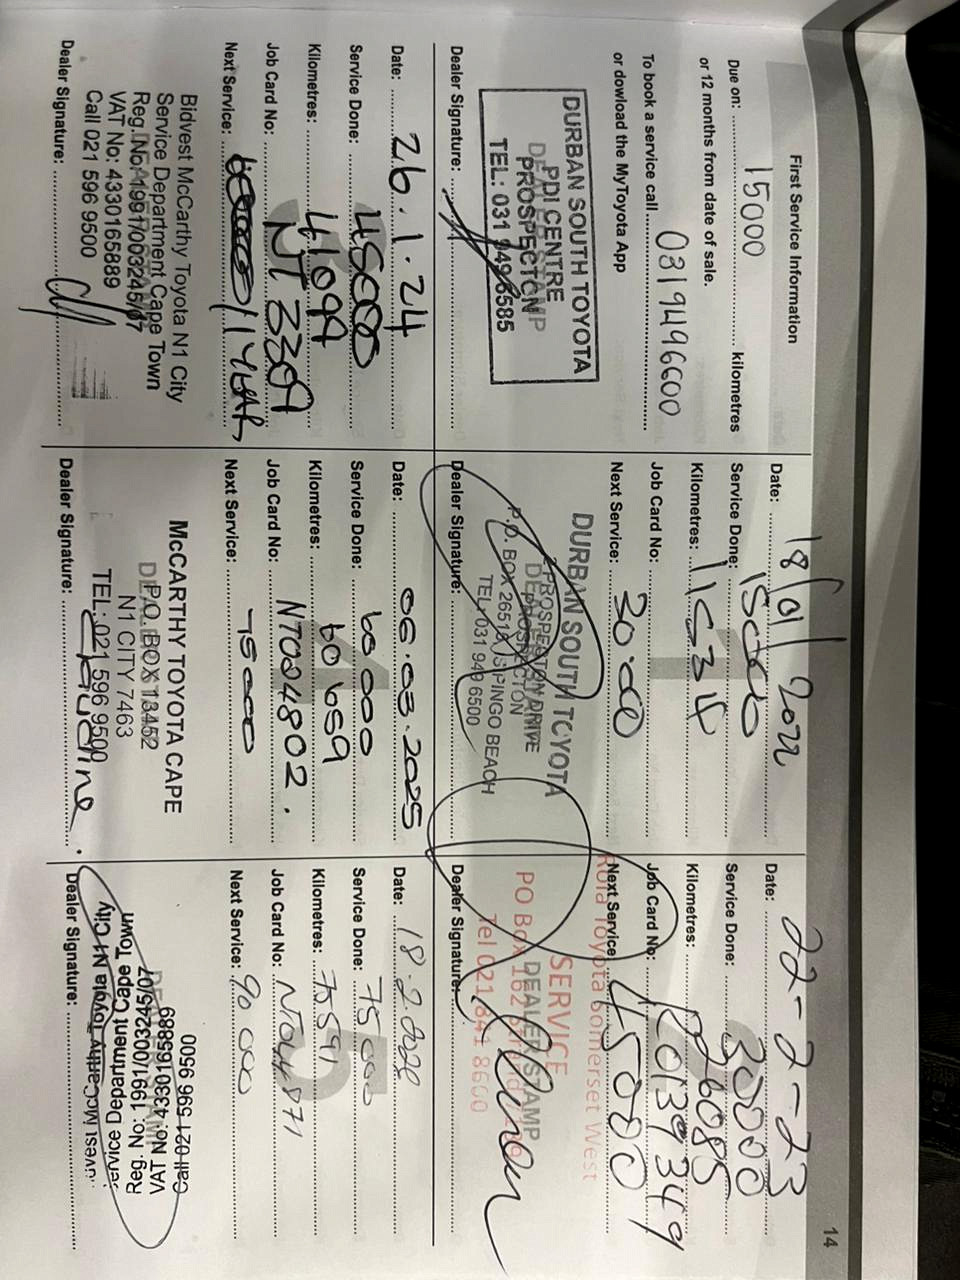 14
First Service Information
Due on: 15000 kilometres
or 12 months from date of sale.
0319496600
To book a service call
or dowload the MyToyota App
DURBAN SOUTH TOYOTA
PDI CENTRE
PROSPECTON
TEL: 031 949 6585
Dealer Signature:
Date: 18/01/2022
Service Done: 15000
Kilometres: 11534
Job Card No:
Next Service: 30 000
DURBAN SOUTH TOYOTA
PROSPECTON DRIVE
PROSPECTON
P.O. BOX 26518, ISIPINGO BEACH
TEL: 031 949 6500
Dealer Signature:
Date: 22-2-23
Service Done: 30000
Kilometres: 26085
Job Card No: 10139349
Next Service: 45000
Toyota Somerset West
SERVICE
DEALER STAMP
PO Box 162
Tel 021 841 8600
Dealer Signature:
3
Date: 26.1.24
Service Done: 45000
Kilometres: 41099
Job Card No: NT 3309
Next Service: 1 YEAR,
Bidvest McCarthy Toyota N1 City
Service Department Cape Town
Reg. No. 1991/003245/07
VAT No: 4330165889
Call 021 596 9500
Dealer Signature:
4
Date: 06.03.2025
Service Done: 60 000
Kilometres: 60 659
Job Card No: NT024802.
Next Service: 75000
McCARTHY TOYOTA CAPE
P.O. BOX 13452
N1 CITY 7463
TEL: 021 596 9500
Dealer Signature: Claudine.
5
Date: 18.2.2026
Service Done: 75 000
Kilometres: 75591
Job Card No: N044871
Next Service: 90 000
McCarthy Toyota N1 City
Service Department Cape Town
Reg. No: 1991/003245/07
VAT No: 4330165889
Call 021 596 9500
Dealer Signature: